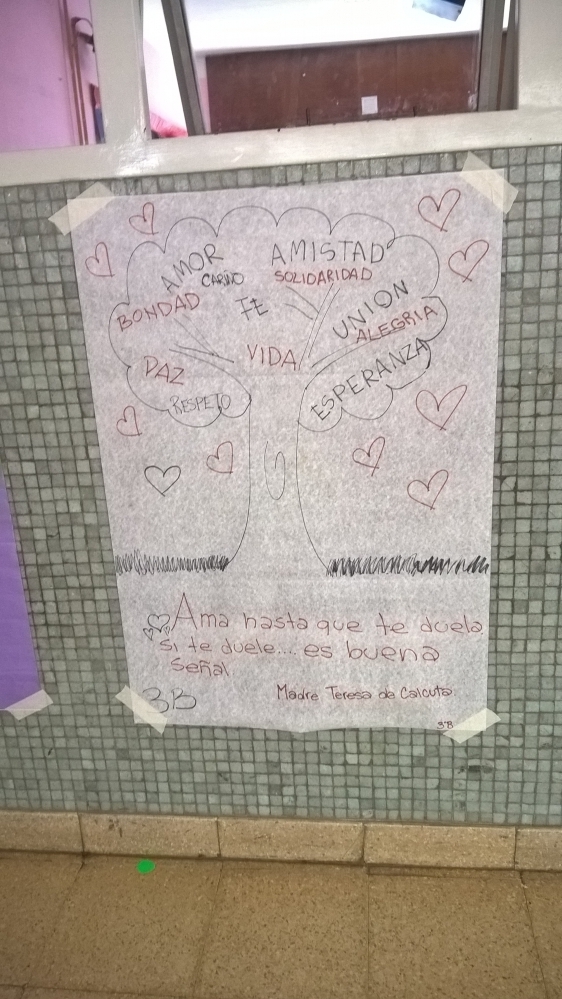 AMOR
AMISTAD
CARIÑO
SOLIDARIDAD
BONDAD
FE
UNION
ALEGRIA
VIDA
PAZ
ESPERANZA
RESPETO
Ama hasta que te duela
si te duele.... es buena
señal
3B
Madre Teresa de Calcuta.
3°B